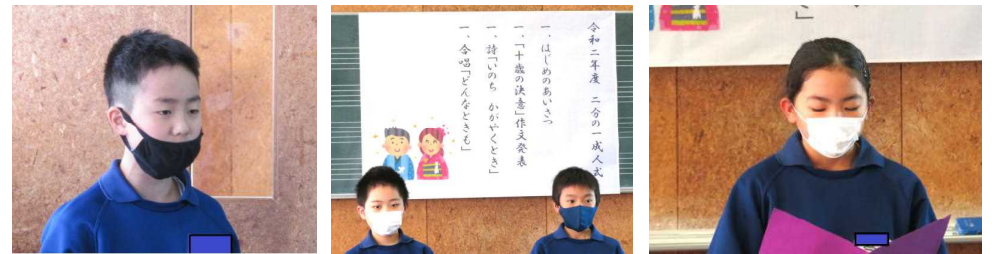 令和二年度　二分の一成人式
一、はじめのあいさつ
一、「十歳の決意」作文発表
一、詩「いのち　かがやくとき」
一、合唱「どんなときも」